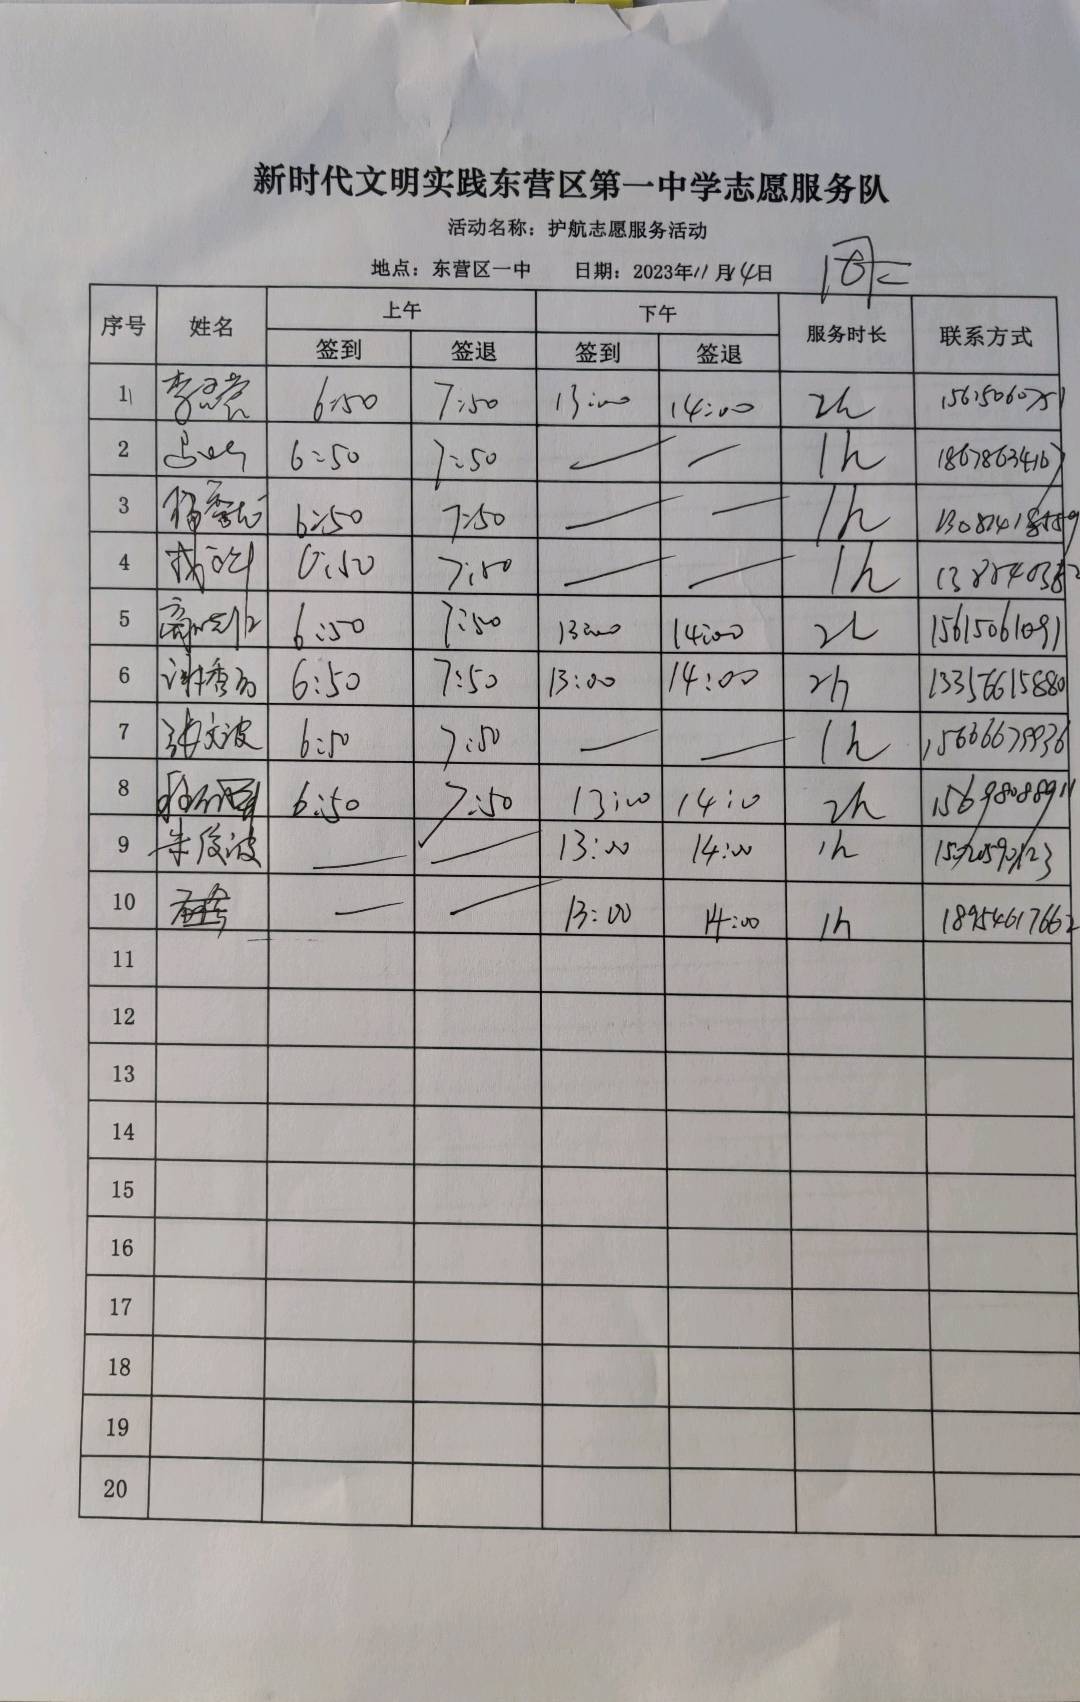 新时代文明实践东营区第一中学志愿服务队
活动名称：护航志愿服务活动
地点：东营区一中 日期：2023年11月14日
序号 姓名 上午 下午 服务时长 联系方式
签到 签退 签到 签退
1 6:50 7:50 13:00 14:00 2h
2 6:50 7:50 — — 1h
3 6:50 7:50 — — 1h
4 6:50 7:50 — — 1h
5 6:50 7:50 13:00 14:00 2h 15615061091
6 谢秀芬 6:50 7:50 13:00 14:00 2h 13356615880
7 张文波 6:50 7:50 — — 1h 15606679936
8 6:50 7:50 13:00 14:00 2h 15698088911
9 朱俊波 — — 13:00 14:00 1h
10 — — 13:00 14:00 1h 18954617662
11
12
13
14
15
16
17
18
19
20